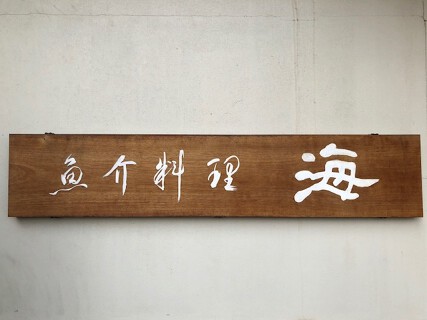 魚介料理 海